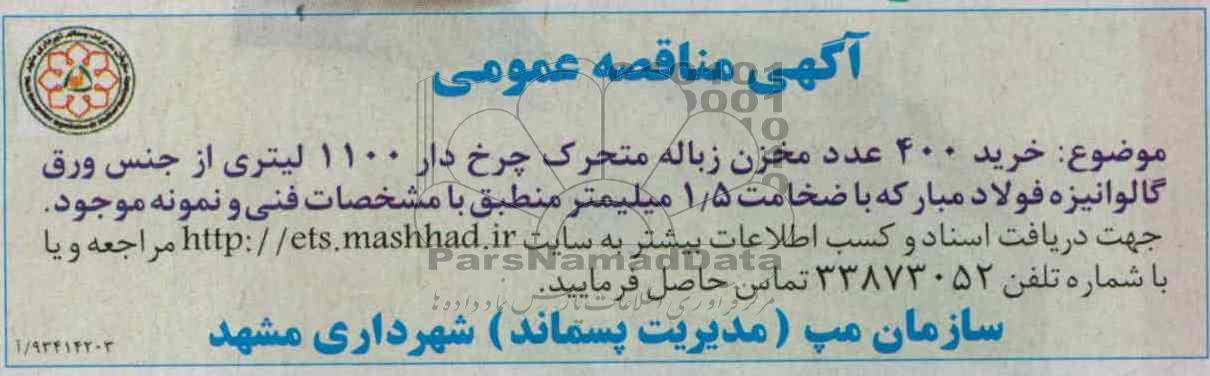 آگهی مناقصه عمومی
موضوع: خرید ۴۰۰ عدد مخزن زباله متحرک چرخ دار ۱۱۰۰ لیتری از جنس ورق
گالوانیزه فولاد مبارکه با ضخامت ۱٫۵ میلیمتر منطبق با مشخصات فنی و نمونه موجود.
جهت دریافت اسناد و کسب اطلاعات بیشتر به سایت http://ets.mashhad.ir مراجعه و یا
ParsNamadData
با شماره تلفن ۳۳۸۷۳۰۵۲ تماس حاصل فرمایید.
سازمان مپ (مدیریت پسماند) شهرداری مشهد
۹۳۴۱۴۲۰۳/آ